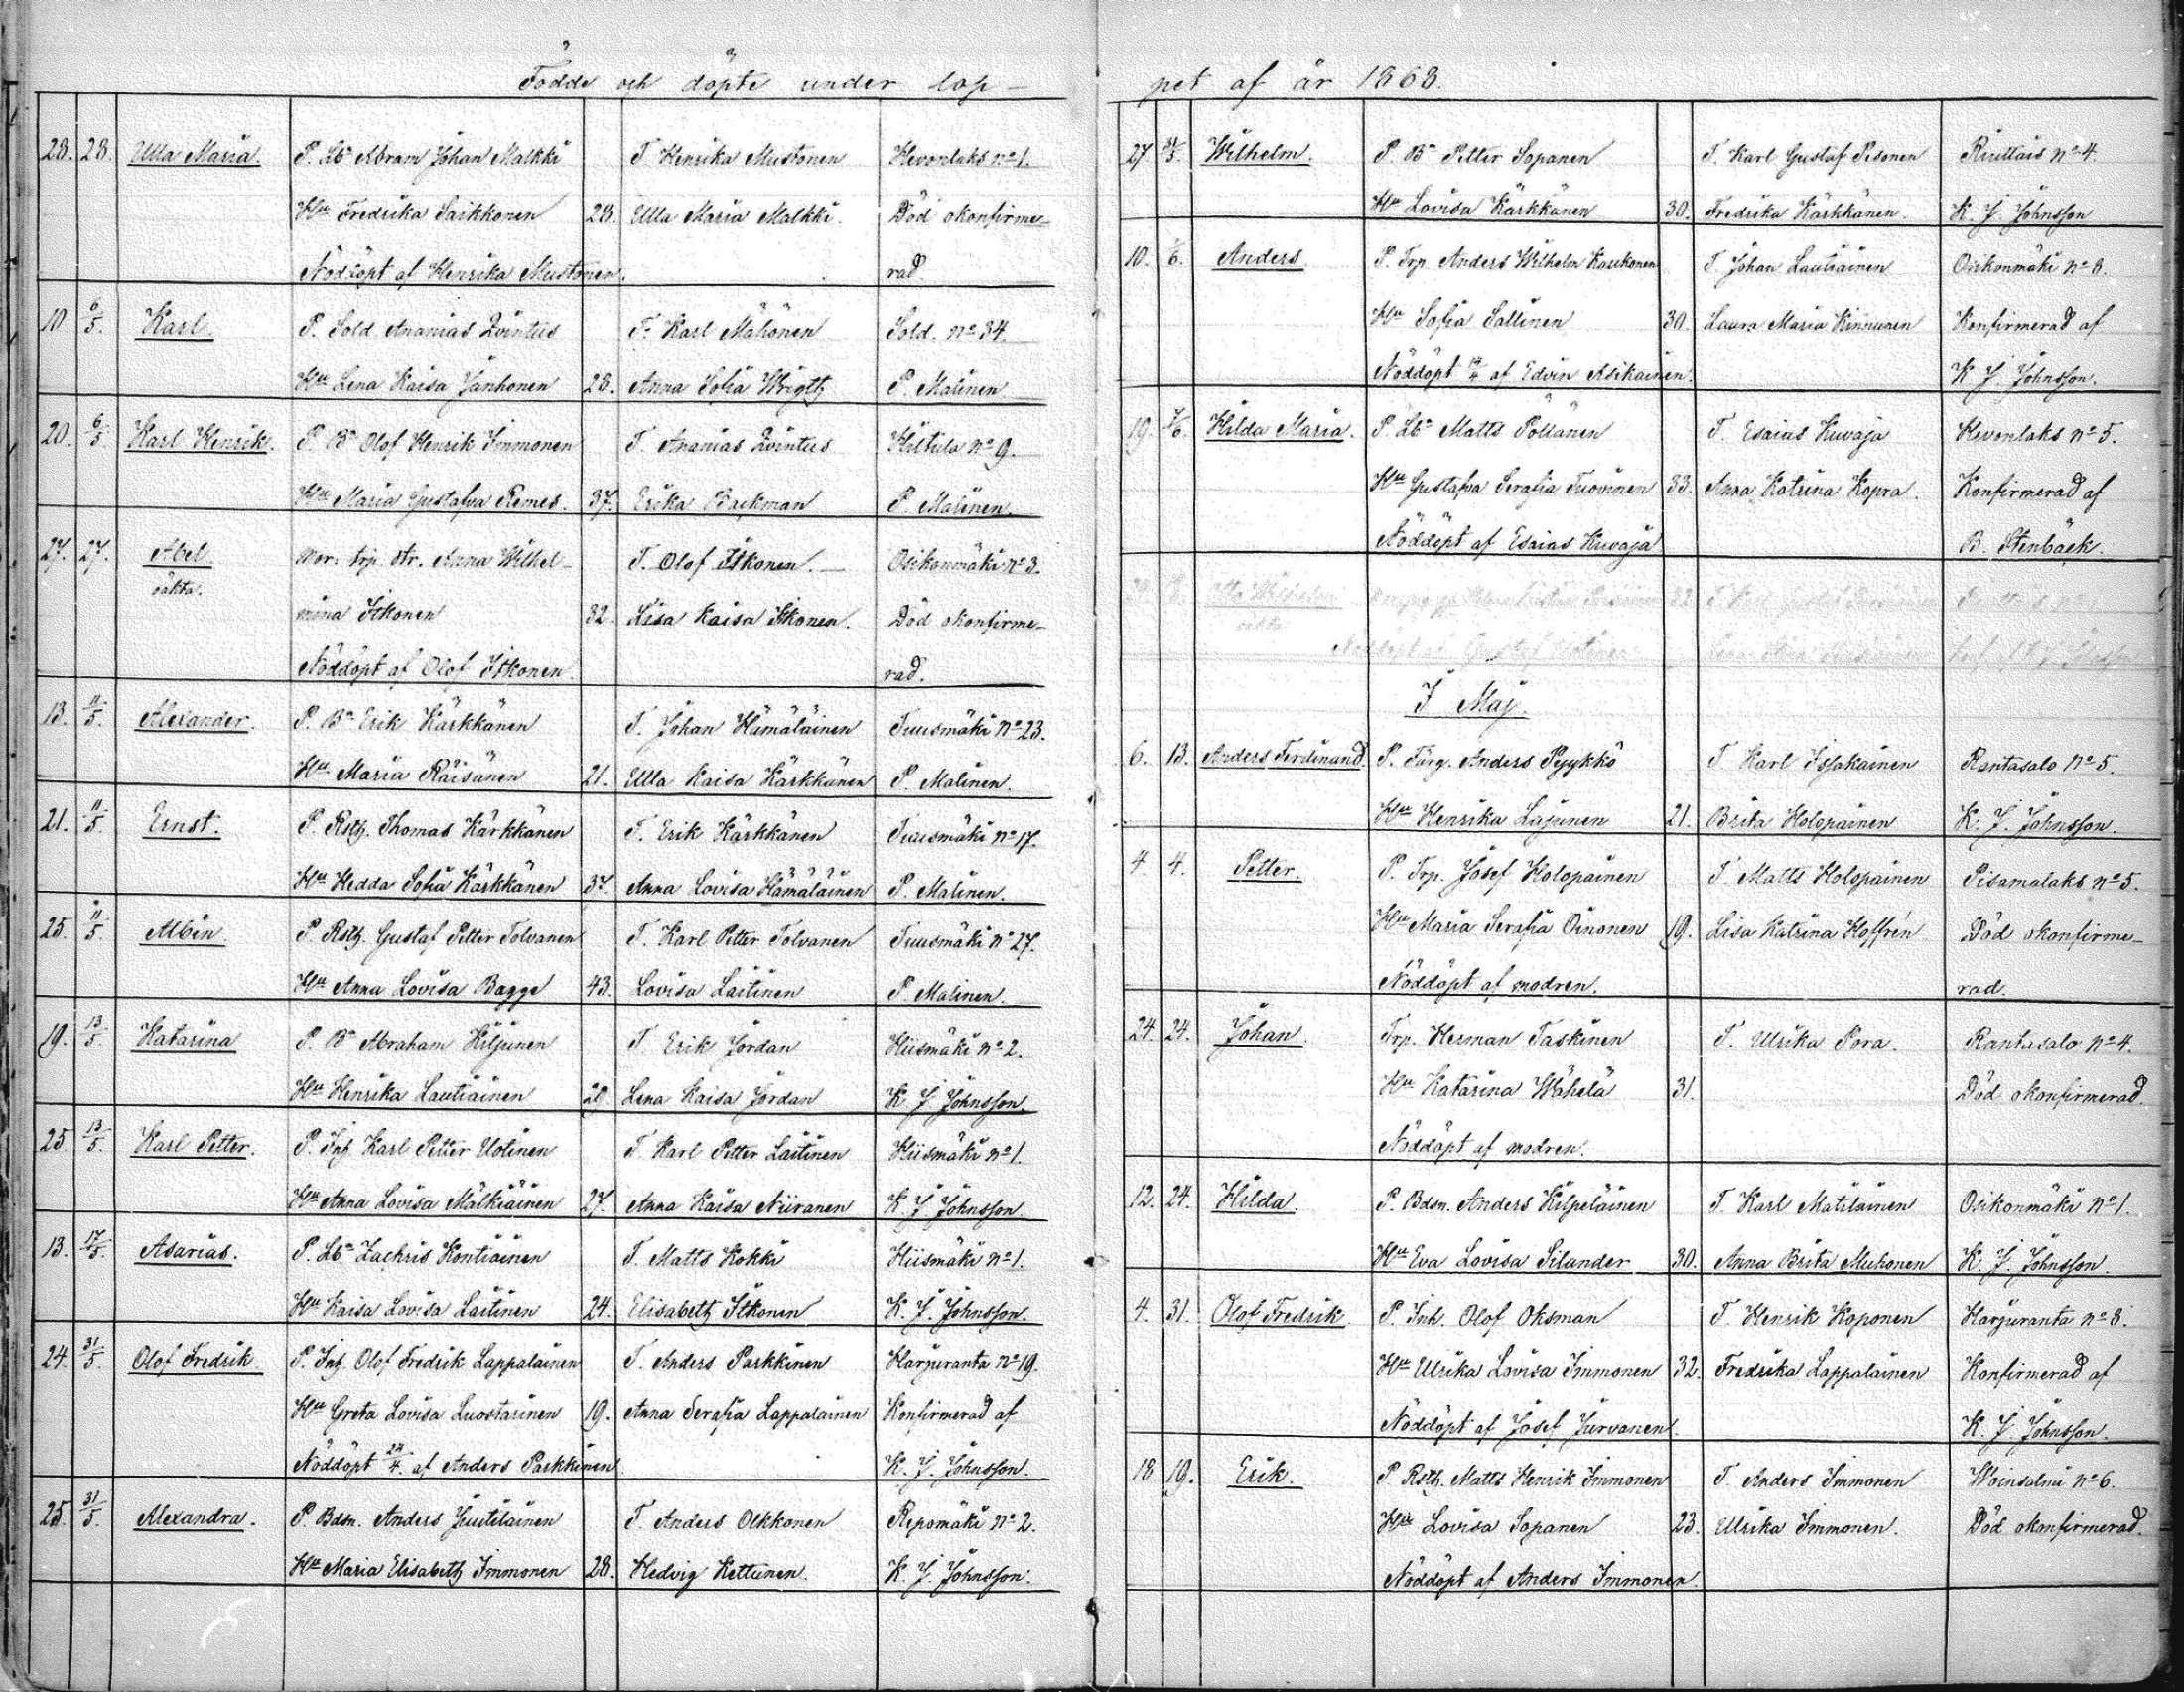 Födde och döpte under lop-
28. 28. Ulla Maria. P. Lb. Abram Johan Malkki T. Henrika Mustonen Hevonlaks no 1.
Hu Fredrika Saikkonen 28. Ulla Maria Malkki. Död okonfirme-
Nöddöpt af Henrika Mustonen. rad
10 6/5. Karl. P. Sold. Ananias Qvintus T. Karl Mähönen Sold. no 34.
Hu Lena Kaisa Janhonen 28. Anna Sofia Wrigth P. Malinen
20. 6/5 Karl Henrik. P. Bd Olof Henrik Immonen T. Ananias Qvintus Hiltula no 9.
Hu Maria Gustafva Remes. 37. Erika Backman P. Malinen.
27. 27. Abel Mor: trp. dr. Anna Wilhel- T. Olof Itkonen. Osikonmäki no 3.
oäkta. mina Itkonen 32. Lisa Kaisa Itkonen. Död okonfirme-
Nöddöpt af Olof Itkonen rad.
13. 11/5. Alexander. P. Bd Erik Kärkkänen T. Johan Hämäläinen Tuusmäki No 23.
Hu Maria Räisänen 21. Ulla Kaisa Kärkkänen P. Malinen.
21. 11/5. Ernst. P. Rsth. Thomas Kärkkänen T. Erik Kärkkänen Tuusmäki no 17.
Hu Hedda Sofia Kärkkänen 37. Anna Lovisa Hämäläinen P. Malinen.
25. 11/5. Albin P. Rsth. Gustaf Petter Tolvanen T. Karl Petter Tolvanen Tuusmäki no 27.
Hu Anna Lovisa Bagge 43. Lovisa Laitinen P. Malinen.
19. 13/5. Katarina P. Bd Abraham Kiljunen T. Erik Jordan Hiismäki no 2.
Hu Henrika Lautiainen Lena Kaisa Jordan K. J. Johnsson.
25 13/5. Karl Petter. P. Inh Karl Petter Uotinen T. Karl Petter Laitinen Hiismäki no 1.
Hu Anna Lovisa Mälkiäinen 27. Anna Kaisa Niiranen K. J. Johnsson
13. 17/5. Asarias. P. Lb. Zachris Kontiainen T. Matts Kokki Hiismäki no 1.
Hu Kaisa Lovisa Laitinen 24. Elisabeth Itkonen K. J. Johnsson.
24. 31/5. Olof Fredrik P. Inh. Olof Fredrik Lappalainen T. Anders Parkkinen Harjuranta no 19.
Hu Greta Lovisa Luostarinen 19. Anna Serafia Lappalainen Konfirmerad af
Nöddöpt 24/4. af Anders Parkkinen K. J. Johnsson.
25. 31/5. Alexandra. P. Bdsn. Anders Juutilainen T. Anders Olkkonen Repomäki no 2.
Hu Maria Elisabeth Immonen 28. Hedvig Kettunen. K. J. Johnsson.
pet af år 1868.
27 31/5. Wilhelm. P. Bd Petter Sopanen T. Karl Gustaf Pesonen Ruuttais no 4.
Hu Lovisa Kärkkänen 30. Fredrika Kärkkänen. K. J. Johnsson
10. 1/6. Anders P. Trp. Anders Wilhelm Kaukonen T. Johan Lautiainen Osikonmäki no 8.
Hu Sofia Sallinen 30. Laura Maria Kinnunen Konfirmerad af
Nöddöpt af Edvin Asikainen. K. J. Johnsson.
19. 7/6. Hilda Maria. P. Lb. Matts Pöllänen T. Esaias Kuvaja Hevonlaks no 5.
Hu Gustafva Serafia Tuovinen 33. Anna Katrina Kopra. Konfirmerad af
Nöddöpt af Esaias Kuvaja B. Stenbäck.
Otto Wilhelm
oäkta
Nöddöpt af Gustaf Uotinen
I Maj.
6. 13. Anders Ferdinand P. Färg. Anders Pyykkö T. Karl Issakainen Rantasalo no 5.
Hu Henrika Lajunen 21. Brita Holopainen K. J. Johnsson.
4 4. Petter. P. Trp. Josef Holopainen T. Matts Holopainen Pisamalaks no 5.
Hu Maria Serafia Oinonen 19. Lisa Katrina Hoffrén Död okonfirme-
Nöddöpt af modren. rad.
24. 24. Johan. Trp. Herman Taskinen T. Ulrika Pora. Rantasalo no 4.
Hu Katarina Wähelä 31. Död okonfirmerad.
Nöddöpt af modren.
12. 24. Hilda. P. Bdsn. Anders Kilpeläinen T. Karl Matilainen Osikonmäki no 1.
Hu Eva Lovisa Silander 30. Anna Brita Muhonen K. J. Johnsson.
4. 31. Olof Fredrik P. Inh. Olof Oksman T. Henrik Koponen Harjuranta no 8.
Hu Ulrika Lovisa Immonen 32. Fredrika Lappalainen Konfirmerad af
Nöddöpt af Josef Jurvanen K. J. Johnsson.
18. 19. Erik. P. Rsth. Matts Henrik Immonen T. Anders Immonen Woinsalmi no 6.
Hu Lovisa Sopanen 23. Ulrika Immonen. Död okonfirmerad.
Nöddöpt af Anders Immonen.